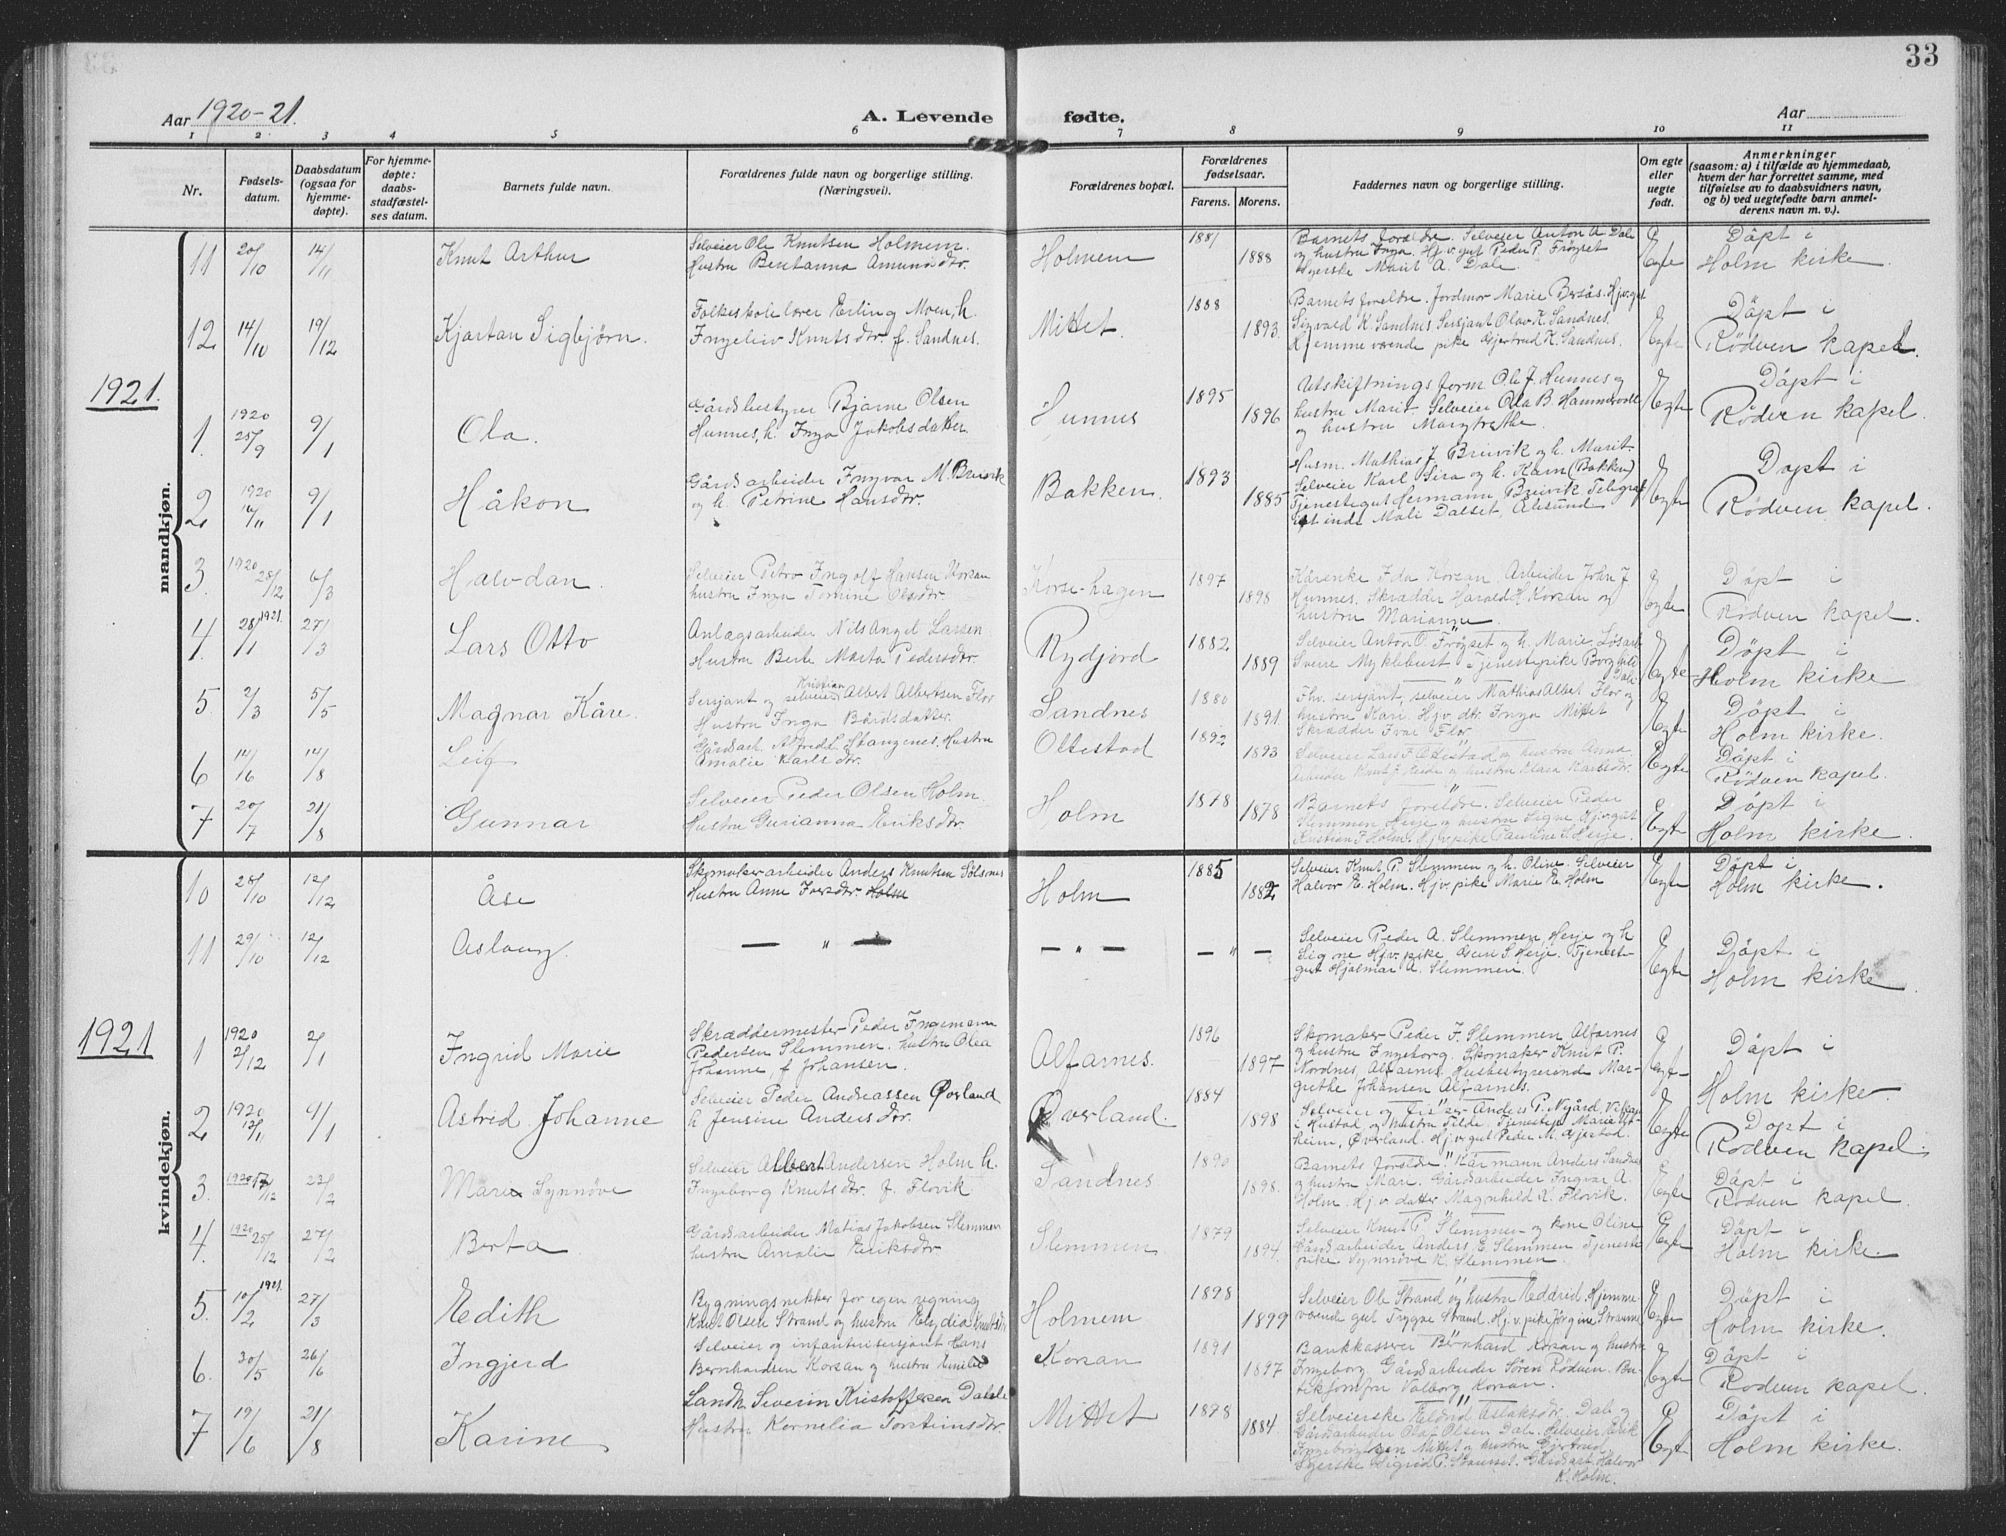 33
Aar 1920-21.
A. Levende fødte.
Aar
1 2 3 4 5 6 7 8 9 10 11
Nr.
Fødsels-
datum.
Daabsdatum
(ogsaa for
hjemme-
døpte).
For hjemme-
døpte:
daabs-
stadfæstel-
ses datum.
Barnets fulde navn.
Forældrenes fulde navn og borgerlige stilling.
(Næringsvei).
Forældrenes bopæl.
Forældrenes
fødselsaar.
Farens. Morens.
Faddernes navn og borgerlige stilling.
Om egte
eller
uegte
født.
Anmerkninger
(saasom: a) i tilfælde av hjemmedaab,
hvem der har forrettet samme, med
tilføielse av to daabsvidners navn,
og b) ved uegtefødte barn anmel-
derens navn m. v.).
mandkjøn.
11 20/10 14/11 Knut Arthur
Selveier Ole Knutsen Holmem.
Hustru Bentanna Amundsdtr.
Holmem 1881 1888
Barnets forældre. Selveier Anton A. Dale
og hustru Inga. Hj.v. gut Peder P. Frøyset
Syerske Marit A. Dale.
Egte
Døpt i
Holm kirke.
12 14/10 19/12 Kjartan Sigbjørn.
Folkeskolelærer Erling Moen, h.
Ingeleiv Knutsdtr. f. Sandnes.
Mittet. 1888 1893
Barnets foreldre. Jordmor Marie Bersås. Hjv. gut
Sigvald K. Sandnes Sersjant Olav K. Sandnes.
Hjemmeværende pike Gjertrud K. Sandnes.
Egte
Døpt i
Rødven kapel.
1921.
1. 1920 25/9 9/1 Ola.
Gårdsbestyrer Bjarne Olsen
Hunnes, h. Inga Jakobsdatter
Hunnes 1895 1896
Utskiftningsform. Ole J. Hunnes og
hustru Marit. Selveier Ola B. Hammervold
og hustru Margrethe.
Egte
Døpt i
Rødven kapel.
2 1920 14/11 9/1 Håkon
Gårdsarbeider Ingvar M. Breivik
og h. Petrine Hansdtr.
Bakken. 1893 1885
Husm. Mathias J. Breivik og h. Marit.
Selveier Karl Sira og h. Karn (Bakken)
Tjenestegut Hermann Breivik Telegraf
istinde Mali Dalset, Ålesund
Egte
Døpt i
Rødven kapel.
3. 1920 28/12 6/3 Halvdan.
Selveier Petro Ingolf Hansen Korsan
hustru Inga Tomine Olsdtr.
Korse-hagen 1897 1898
Kårenke Ida Korsan. Arbeider John J.
Hunnes. Skrædder Harald H. Korsan og
hustru Marianne.
Egte
Døpt i
Rødven kapel.
4. 1921. 28/1 27/3 Lars Otto
Anlægsarbeider Nils Anget Larsen
Hustru Berte Marta Pedersdtr.
Rydjord 1882 1889
Selveier Anton O. Frøyset og h. Marie
Sverre Myklebust Tjenestepike Borghild
Dale
Egte
Døpt i
Holm kirke
5. 2/3 5/5 Magnar Kåre.
Sersjant og selveier Kristian Albert Albertsen Flor
Hustru Inga Bårdsdatter.
Sandnes 1880 1891
Fhv. sersjant, selveier Mathias Albert Flor og
hustru Kari. Hjv. dtr. Inga Mittet
Skrædder Ivar Flor
Egte
Døpt i
Holm kirke.
6 14/6 14/8 Leif
Gårdsarb. Alfred L. Stangenes. Hustru
Amalie Karlsdtr.
Ottestad 1892 1893
Selveier Lars F. Ottestad og hustru Anna
Arbeider Knut J. Reide og hustru Klara Karlsdtr.
Egte
Døpt i
Rødven kapel.
7 20/7 21/8 Gunnar
Selveier Peder Olsen Holm.
Hustru Gurianna Eriksdtr.
Holm 1878 1878
Barnets foreldre. Selveier Peder
Slemmen, Herje og hustru Signe Hjv. gut
Kristian F. Holm. Hjv. pike Pauline S. Herje.
Egte
Døpt i
Holm kirke.
kvindekjøn.
10 28/10 12/12 Åse
Skomakerarbeider Anders Knutsen Sølsnes
Hustru Anne Iversdtr. Holm
Holm 1885 1882
Selveier Knut P. Slemmen og h. Oline. Selveier
Halvor E. Holm. Hjv. pike Marie E. Holm
Egte
Døpt i
Holm kirke.
11 29/10 12/12 Aslaug.
— " — — " — — " —
Selveier Peder A. Slemmen, Herje og h
Signe Hjv. pike Gun S Herje. Tjeneste-
gut Hjalmar A. Slemmen.
Egte
Døpt i
Holm kirke.
1921
1 1920 2/12 2/1 Ingrid Marie
Skræddermester Peder Ingemann
Pedersen Slemmen. hustru Olea
Johanne, f Johansen.
Alfarnes. 1896 1897
Skomaker Peder F. Slemmen Alfarnes
og hustru Ingeborg. Skomaker Knut P.
Nordnes, Alfarnes. Husbestyrerende Mar-
grethe Johansen Alfarnes.
Egte
Døpt i
Holm kirke.
2 1920 12/11 9/1 Astrid Johanne
Selveier Peder Andreassen Øverland
h Jensine Andersdtr.
Øverland. 1884 1898
Selveier og fisker Anders P. Nygård,
i Hustad og hustru Tilde. Tjenestepi Marie
heim, Øverland. Hj.v. gut Peder M. Gjestad.
Egte
Døpt i
Rødven kapel.
3. 1920 17/12 23/2 Mari Synnøve
Selveier Albert Andersen Holm h.
Ingeborg Knutsdtr. f. Flovik
Sandnes 1890 1898.
Barnets foreldre. Kårmann Anders Sandnes
og hustru Mari. Gårdsarbeider Ingvar A.
Holm. Hj.v. datter Magnhild K. Flovik.
Egte
Døpt i
Rødven kapel.
4. 1920 25/12 27/2 Berta
Gårdsarbeider Matias Jakobsen Slemmen
hustru Amalie Eriksdtr
Slemmen 1879 1894.
Selveier Knut P. Slemmen og kone Oline
Gårdsarbeider Anders E. Slemmen Tjeneste
pike Synnøve K. Slemmen.
Egte
Døpt i
Holm kirke.
5. 1921. 10/2 27/3 Edith
Bygningssnekker for egen regning
Knut Olsen Strand og hustru Elydia Knutsdtr
Holmem 1898 1899
Selveier Ole Strand og hustru Eddrid. Hjemme-
værende gut Trygve Strand. Hj.v. pike Jørgine Strand
Egte
Døpt i
Holm kirke.
6. 30/5 26/6 Ingjerd
Selveier og infanterisersjant Hans
Bernhardsen Korsan og hustru Emilie
Korsan 1891 1897
Bankkasserer Bernhard Korsan og hustru
Ingeborg Gårdsarbeider Søren Rødven. Bu-
tikjomfru Valborg Korsan.
Egte
Døpt i
Rødven kapel.
7 19/6 21/8 Karine
Landh. Severin Kristoffersen Dahle
Hustru Kornelia Torsteinsdtr.
Mittet 1878 1884
Selveierske Eldrid Aslaksdtr. Dale og
Gårdarbeider Olaf Olsen Dale. Selveier Erik
Ingebrigtsen Mittet og hustru Gjertrud
Syerske Sigrid P. Gårdsarb. Halvor
K. Holm.
Egte
Døpt i
Holm kirke.